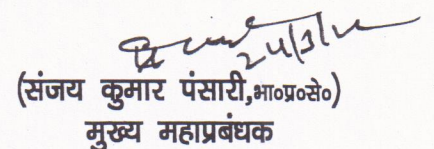 24/3/
(संजय कुमार पंसारी,भा०प्र०से०)
मुख्य महाप्रबंधक